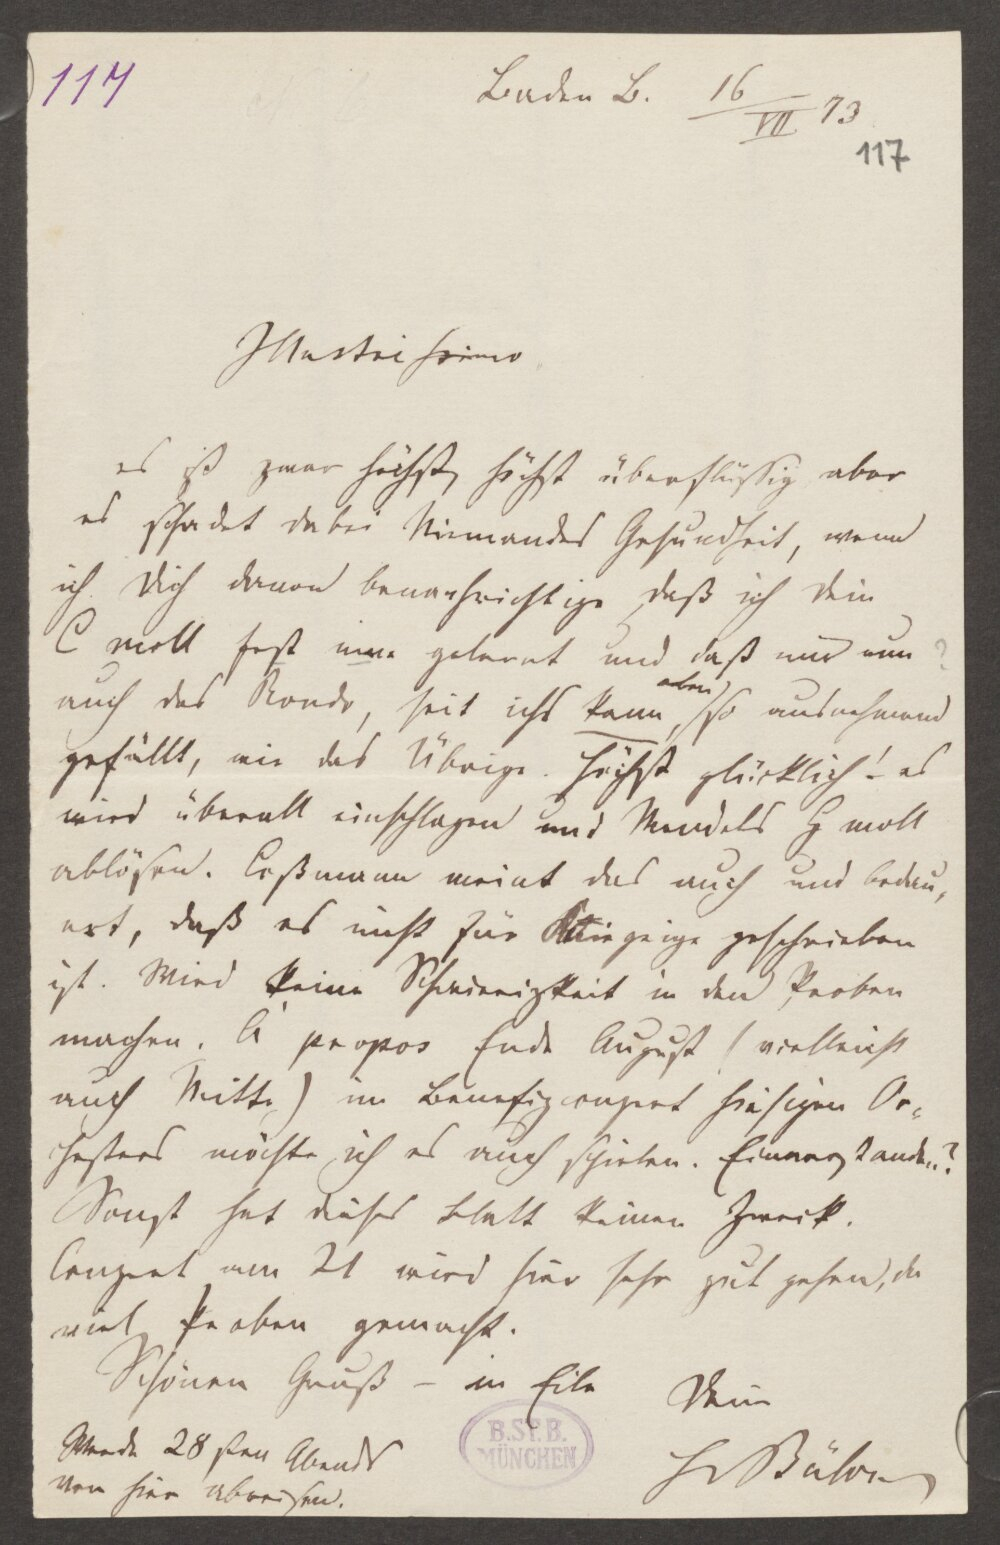 117
Baden B. 16/VII 73
117
Illustrissimo
es ist zwar höchst, höchst überflüssig aber
es schadet dabei Niemandes Gesundheit, wenn
ich Dich davon benachrichtige daß ich dein
C moll fest inne gelernt und daß mir nun ?
auch das Rondo, seit ichs kann, eben so ausnehmend
gefällt, wie das Übrige. Höchst glücklich! – es
wird überall einschlagen und Mendels G moll
ablösen. Coßmann meint das auch und bedau-
ert, daß es nicht für geschrieben
ist. Wird keine Schwierigkeit in den Proben
machen. À propos Ende August (vielleicht
auch Mitte) im Benefizconzert hiesigen Or-
chesters möchte ich es auch spielen. Einverstanden?
Sonst hat dieses Blatt keinen Zweck.
Conzert am 21 wird hier sehr gut gehen, da
viel Proben gemacht.
Schönen Gruß – in Eile
Dein
HvBülow
Werde 28sten Abends
von hier abreisen.
B.ST.B.
MÜNCHEN